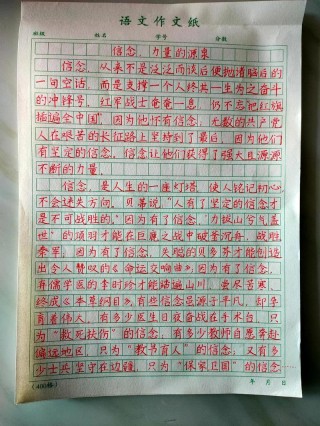 语文作文纸
班级 姓名 学号 分数
信念，力量的源泉
信念，从来不是泛泛而谈后便抛诸脑后的
一句空话，而是支撑一个人终其一生为之奋斗
的冲锋号。红军战士奄奄一息，仍不忘“把红旗
插遍全中国”，因为他怀有信念；无数的共产党
人在艰苦的长征路上坚持到了最后，因为他们
有坚定的信念，信念让他们获得了强大且源源
不断的力量。
信念，是人生的一座灯塔，使人铭记初心，
不会迷失方向。贝蒂说，“人有了坚定的信念才
是不可战胜的。”因为有了信念，“力拔山兮气盖
世”的项羽才能在巨鹿之战中破釜沉舟，战胜
秦军；因为有了信念，失聪的贝多芬才能创造
出令人赞叹的《命运交响曲》；因为有了信念，
弃儒学医的李时珍才能踏遍山川，尝尽苦寒，
终成《本草纲目》。有些信念虽源于平凡，却孕
育着伟大。有多少医生日夜奋战在手术台，只
为“救死扶伤”的信念；有多少教师自愿奔赴
偏远地区，只为“教书育人”的信念；又有多
少士兵坚守在边疆，只为“保家卫国”的信念
(400格) 年 月 日